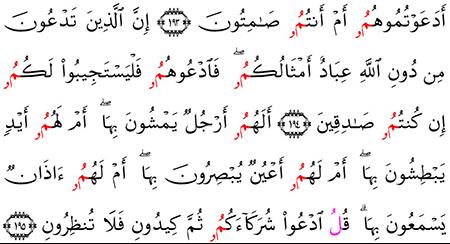 أَدَعَوْتُمُوهُمُۥ أَمْ أَنتُمُۥ صَٰمِتُونَ ﴿١٩٣﴾ إِنَّ ٱلَّذِينَ تَدْعُونَ
مِن دُونِ ٱللَّهِ عِبَادٌ أَمْثَالُكُمُۥ ۖ فَٱدْعُوهُمُۥ فَلْيَسْتَجِيبُوا۟ لَكُمُۥ
إِن كُنتُمُۥ صَٰدِقِينَ ﴿١٩٤﴾ أَلَهُمُۥ أَرْجُلٌ يَمْشُونَ بِهَا ۖ أَمْ لَهُمُۥ أَيْدٍ
يَبْطِشُونَ بِهَا ۖ أَمْ لَهُمُۥ أَعْيُنٌ يُبْصِرُونَ بِهَا ۖ أَمْ لَهُمُۥ ءَاذَانٌ
يَسْمَعُونَ بِهَا ۗ قُلُ ٱدْعُوا۟ شُرَكَآءَكُمُۥ ثُمَّ كِيدُونِ فَلَا تُنظِرُونِ ﴿١٩٥﴾